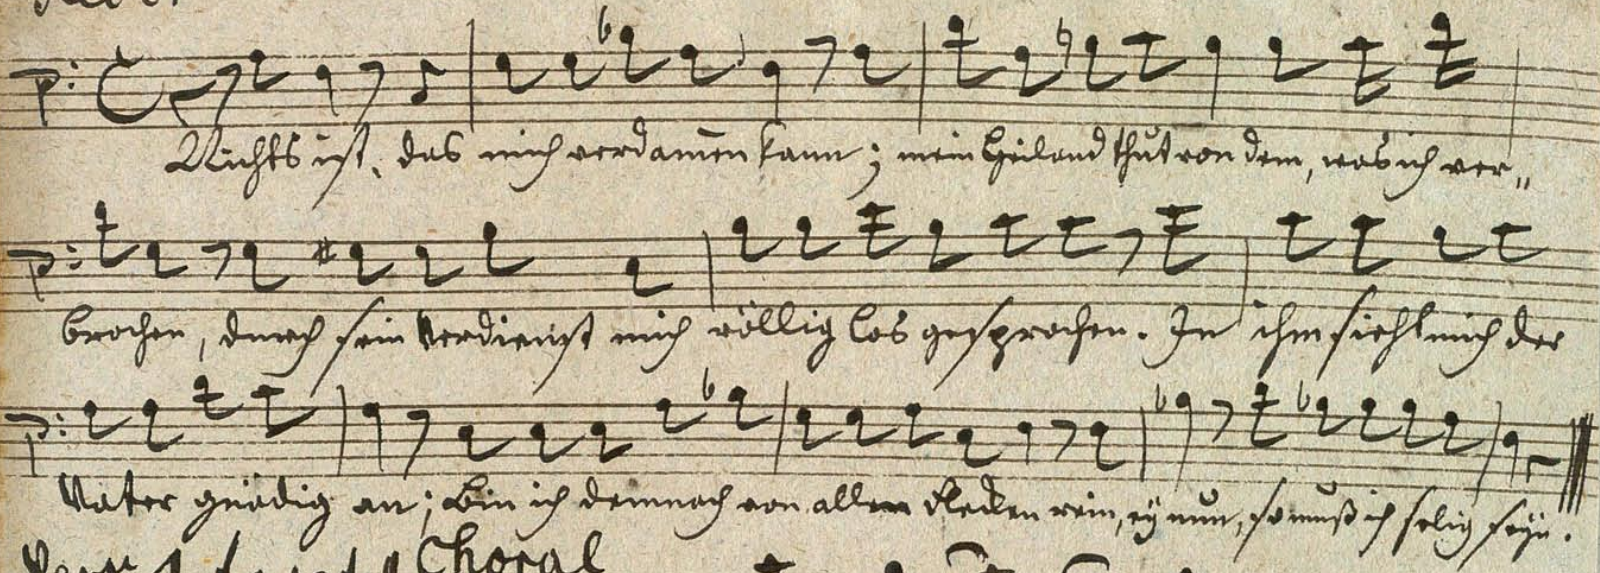 Nichts ist, das mich verdam̄en kann; mein Heiland thut von dem, was ich ver„
brochen, durch sein Verdienst mich völlig los gesprochen. In ihm sieht mich der
Vater gnädig an; Bin ich demnach von allen Flecken rein, ey nun, so muß ich selig seyn.
Choral